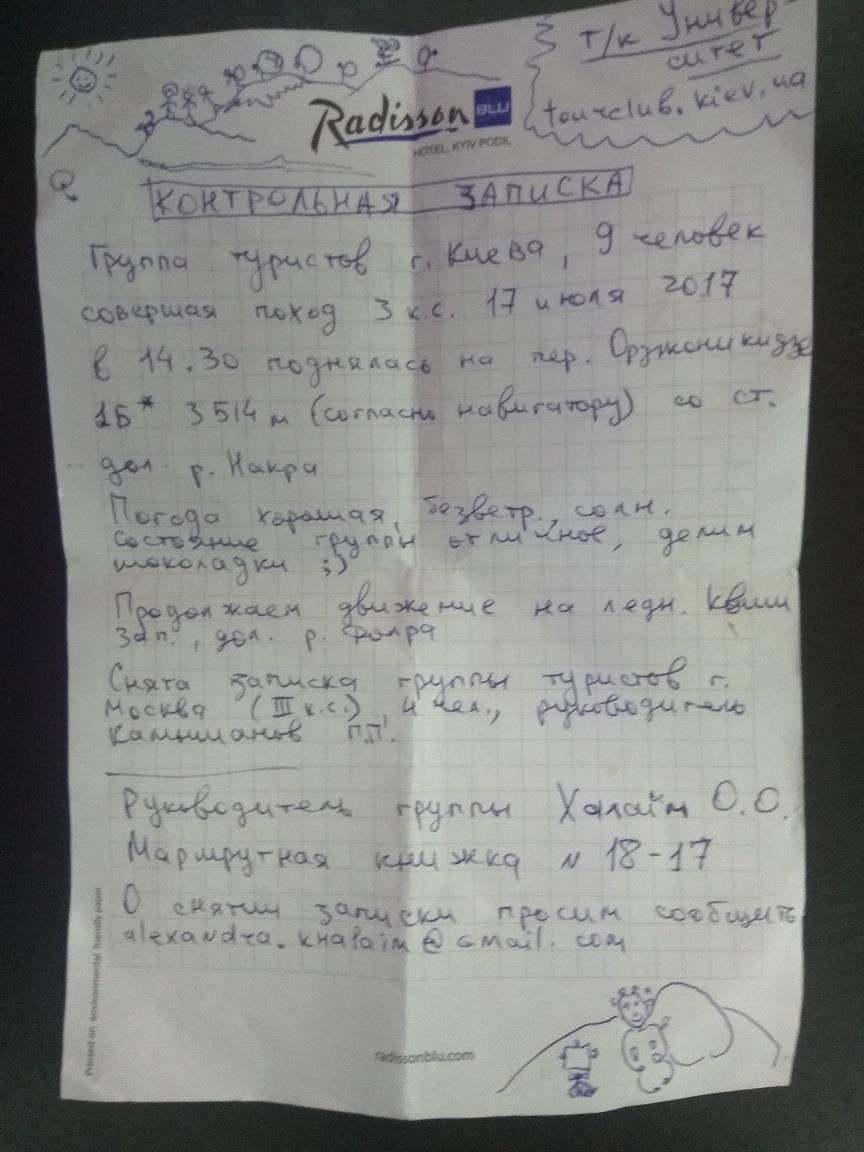 т/к Универ-
ситет
tourclub.kiev.ua
Radisson BLU
HOTEL, KYIV PODIL
КОНТРОЛЬНАЯ ЗАПИСКА
Группа туристов г. Киева, 9 человек
совершая поход 3 к.с. 17 июля 2017
в 14:30 поднялась на пер. Орджоникидзе
1Б* 3514 м (согласно навигатору) со ст.
дол. р. Накра
Погода хорошая, безветр., солн.
Состояние группы отличное, делим
шоколадки ;)
Продолжаем движение на ледн. Квиш
Зап., дол. р. Долра
Снята записка группы туристов г.
Москва (III к.с.), 4 чел., руководитель
П.П.
Руководитель группы Халаїм О.О.
Маршрутная книжка N 18-17
О снятии записки просим сообщить
alexandra.khalaim@gmail.com
Printed on environmental friendly paper
radissonblu.com